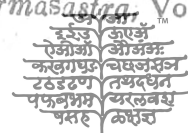 rmasastra. Vo
TM
इईउ ऊएऍ
ऐओऔ ओअंअः
कखगघङ चछजझञ
टठडढण तथदधन
पफबभम यरलवश
षसह ळक्षज्ञ